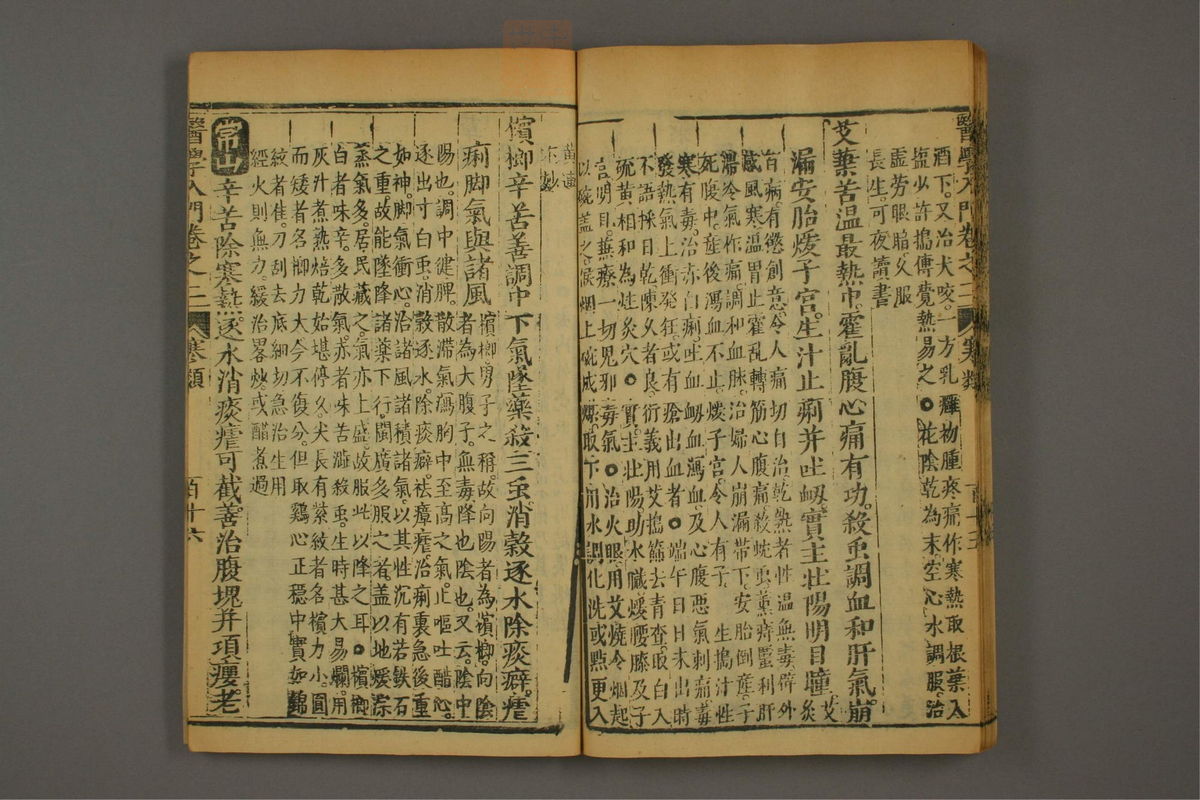 醫學入門卷之二 寒類 百十五
酒下。又治犬咬。一方乳癰物腫疼痛作寒熱取根葉入
塩少許搗傅覺熱易之〇花陰乾為末空心水調服治
虛勞眼暗久服
長生可夜讀書
艾葉苦溫最熱巾。霍亂腹心痛有功。殺虫調血和肝氣。崩
漏安胎煖子宮。生汁止痢并吐衂。實主壯陽明目瞳。艾灸
百病。有懲創意。令人痛切自治乾熱者性溫無毒辟外
感風寒溫胃止霍亂轉筋心腹痛殺蚘虫薰痔䘌利肝
滯冷氣作痛。調和血脉。治婦人崩漏帶下。安胎倒產。子
死腹中。產後瀉血不止。煖子宮。令人有子 生搗汁性
寒有毒。治赤白痢。吐血衂血瀉血。及心腹惡氣刺痛毒
發熱氣上衝發狂。或有瘡出血者〇端午日日未出時
不語採日乾陳久者良。衍義用艾搗篩去青查。取白入
硫黃相和為炷灸穴〇實主壯陽助水臟。煖腰膝及子
宮明目。兼療一切鬼邪毒氣〇治火眼。用艾燒令烟起
以碗盖之。候烟上碗成煤。取下用水調化洗或點更入
黃連
檳榔辛苦善調中 下氣墜藥殺三虫。消穀逐水除痰癖。瘧
痢脚氣與諸風 檳榔。男子之稱。故向陽者為檳榔。向陰
者為大腹子。無毒降也陰也。又云。陰中
陽也。調中健脾。散滯氣瀉胸中至高之氣。止嘔吐醋心
逐出寸白虫。消穀逐水。除痰癖。祛瘴瘧。治痢裏急後重
如神。脚氣衝心。治諸風諸積諸氣以其性沉有若鉄石
之重。故能墜降諸藥下行閩廣多服之者。盖以地煖淙
蒸氣多。居民藏之氣亦上盛。故服此以降之耳〇檳榔
白者味辛。多散氣赤者味苦澁殺虫。生時甚大易爛。用
灰汁煮熟焙乾始堪停久。尖長有紫紋者名檳力小。圓
而矮者各榔力大今不復分。但取鷄心正穩中實如錦
紋者佳。刀刮去底細切急治生用
經火則無力。緩治畧炒或醋煮過
常山 辛苦除寒熱。逐水消痰瘧可截。善治腹塊并項癭。老
醫學入門卷之二 寒類 百十六